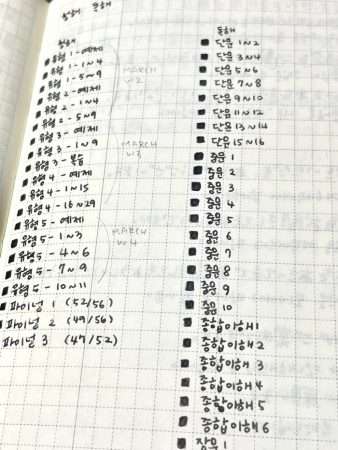 청해 독해
청해
유형 1 - 예제
유형 1 - 1~4
유형 1 - 5~9
유형 2 - 예제
유형 2 - 1~4
유형 2 - 5~9
유형 3 - 예제
유형 3 - 1~9
유형 3 - 복습
유형 4 - 예제
유형 4 - 1~15
유형 4 - 16~29
유형 5 - 예제
유형 5 - 1~3
유형 5 - 4~6
유형 5 - 7~9
유형 5 - 10~11
파이널 1 (52/56)
파이널 2 (49/56)
파이널 3 (47/52)
MARCH
w2
MARCH
w3
MARCH
w4
독해
단문 1~2
단문 3~4
단문 5~6
단문 7~8
단문 9~10
단문 11~12
단문 13~14
단문 15~16
중문 1
중문 2
중문 3
중문 4
중문 5
중문 6
중문 7
중문 8
중문 9
중문 10
종합이해1
종합이해2
종합이해 3
종합이해4
종합이해5
종합이해 6
장문 1